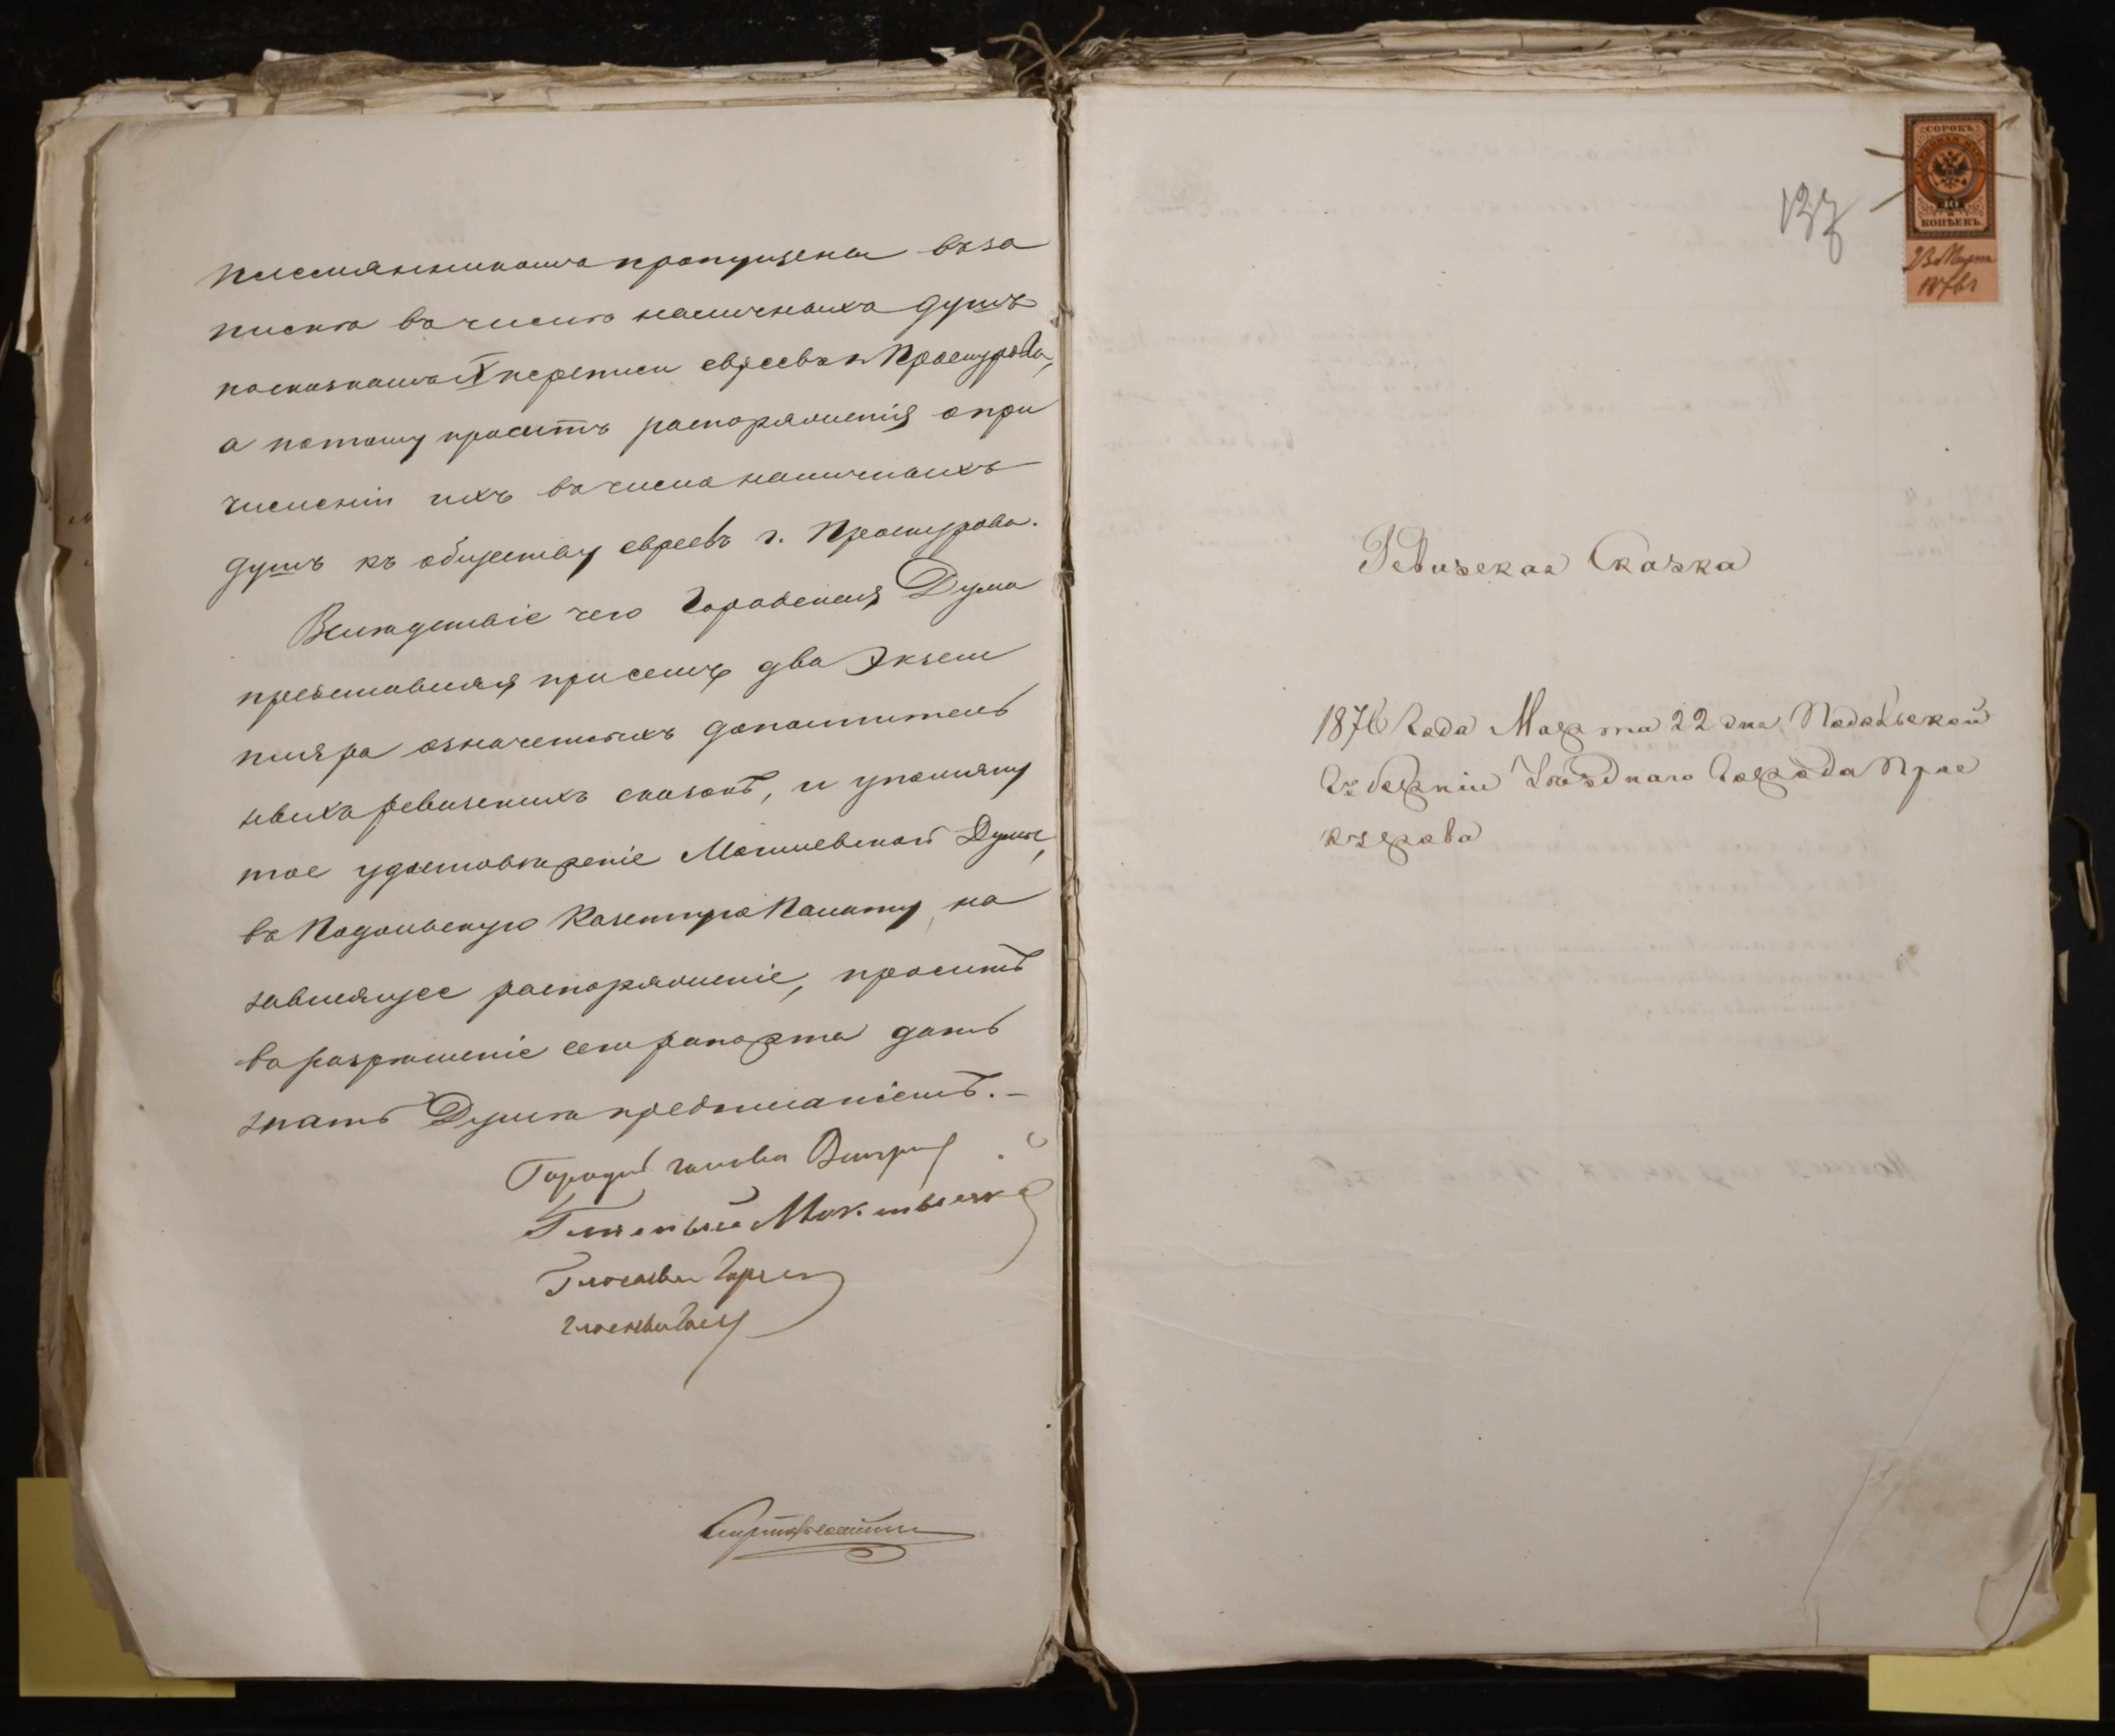 племянниками пропущены въ за
пискѣ въ число наличныхъ душъ
по сказкамъ X переписи евреевъ г. Проскурова,
а потому проситъ распоряженія о при
численіи ихъ въ число наличныхъ
душъ къ обществу евреевъ г. Проскурова.
Вслѣдствіе чего Городская Дума
представляя при семъ два Экзем
пляра означенныхъ дополнитель
ныхъ ревизскихъ сказокъ, и упомяну
тое удостовѣреніе Думы,
въ Подольскую Казенную Палату, на
зависящее распоряженіе, проситъ
въ разрѣшеніе сего рапорта дать
знать Думѣ предписаніемъ. —
Городской голова
Гласный
Гласный
Гласный
СОРОКЪ
40
КОПѢЕКЪ
23 Марта
1876 г
137
Ревизская Сказка
1876 Года Марта 22 дня Подольской
Губерніи Уѣзднаго Города Прос
курова